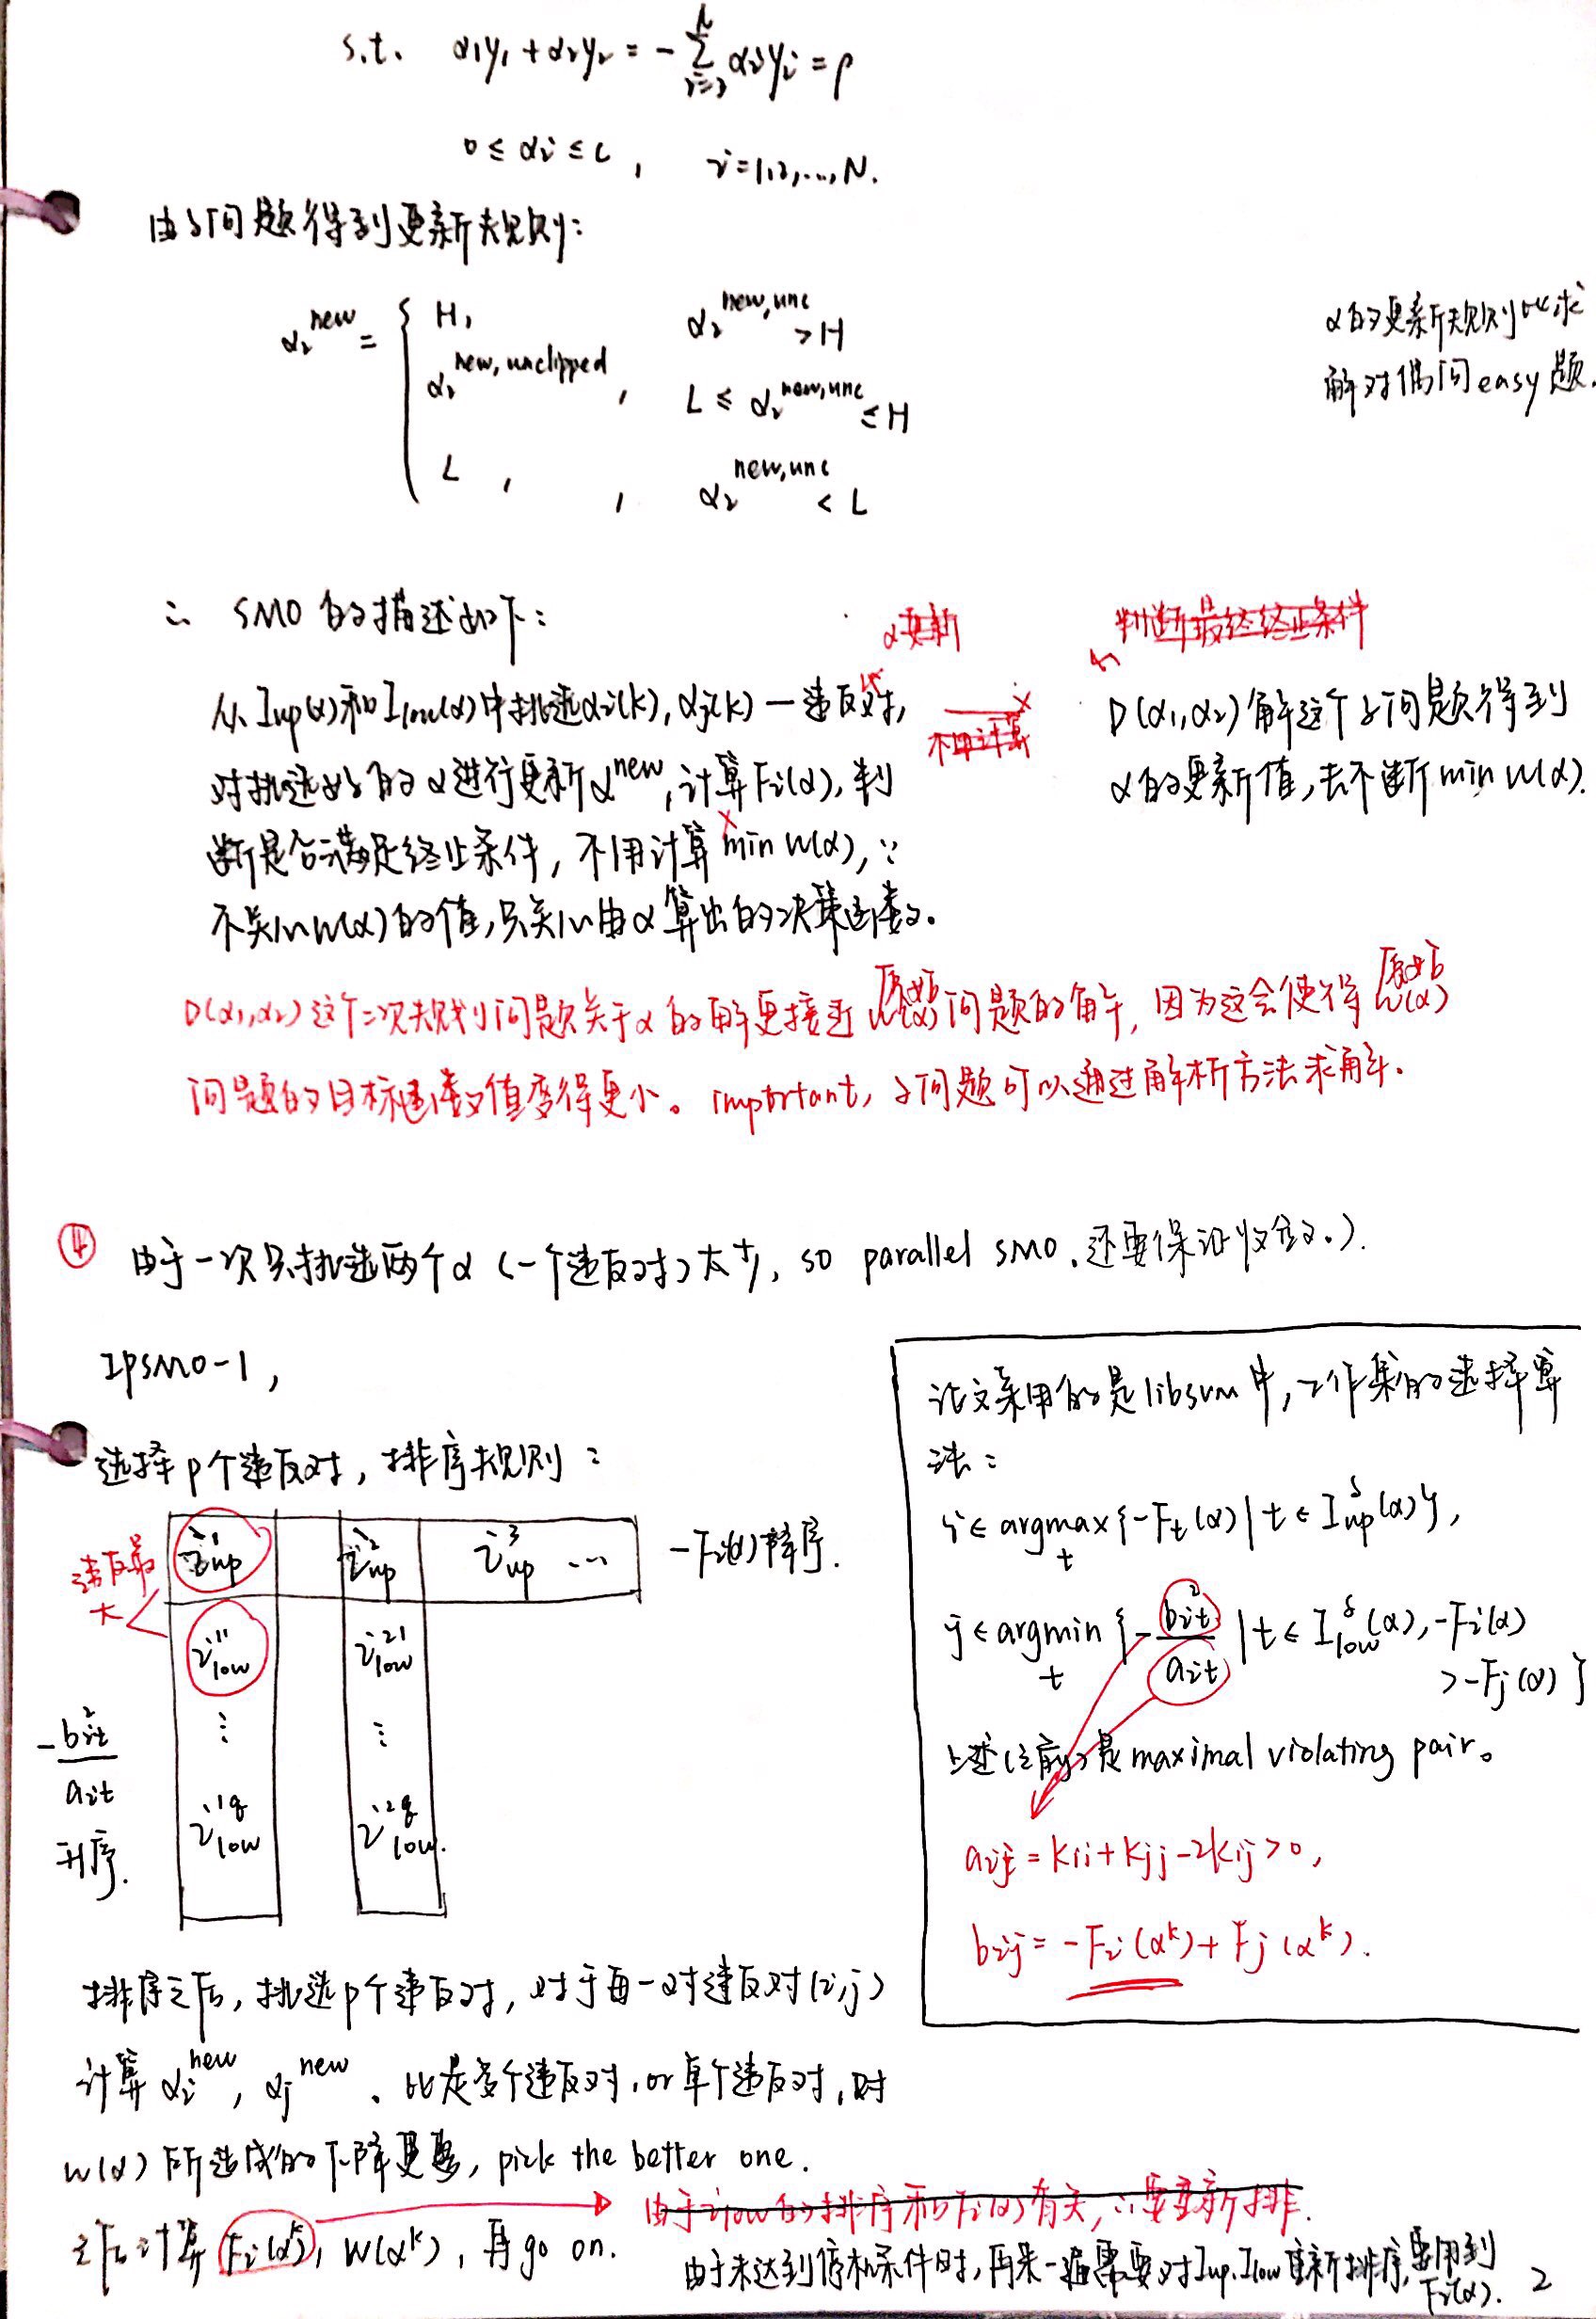 s.t. α₁y₁ + α₂y₂ = -∑_{i=3}^{N} αᵢyᵢ = ρ
0 ≤ αᵢ ≤ C , i=1,2,...,N.
由子问题得到更新规则:
α₂^{new} = { H, α₂^{new,unc} > H
α₂^{new,unclipped} , L ≤ α₂^{new,unc} ≤ H
L , , α₂^{new,unc} < L
α的更新规则比求
解对偶问easy题.
∴ SMO的描述如下:
α更新
判断最终终止条件
从I_up(α)和I_low(α)中挑选αi(k),αj(k)一违反对,
不用计算
对挑选好的α进行更新α^{new},计算Fi(α),判
断是否满足终止条件,不用计算min W(α),∵
不关心W(α)的值,只关心由α算出的决策函数。
D(α₁,α₂)解这个子问题得到
α的更新值,去不断min W(α).
D(α₁,α₂)这个二次规划问题关于α的解更接近原始W(α)问题的解,因为这会使得原始W(α)
问题的目标函数值变得更小。important,子问题可以通过解析方法求解.
④ 由于一次只挑选两个α(一个违反对)太少, so parallel SMO.还要保证收敛.).
IPSMO-1,
选择p个违反对,排序规则:
违反最大
i¹_up i²_up i³_up ... -Fi(α)降序.
i¹¹_low i²¹_low
⋮ ⋮
i^{1q}_low i^{2q}_low.
-b²_it / a_it
升序.
论文采用的是libsvm中,工作集的选择算
法:
i ∈ argmax_t {-F_t(α) | t ∈ I^s_up(α)},
j ∈ argmin_t {-b²_it / a_it | t ∈ I^s_low(α), -Fi(α)
> -Fj(α)}
上述(之前)是maximal violating pair。
aij = Kii + Kjj - 2Kij > 0,
bij = -Fi(α^k) + Fj(α^k).
排序之后,挑选p个违反对,对于每一对违反对(i,j)
计算 αi^{new}, αj^{new}. 比是多个违反对,or单个违反对,对
W(α)所造成的下降更多, pick the better one.
之后计算Fi(α^k), W(α^k),再go on.
由于i_low的排序和Fi(α)有关,∴要重新排.
由于未达到停机条件时,再来一遍需要对I_up,I_low重新排序,要用到
Fi(α). 2